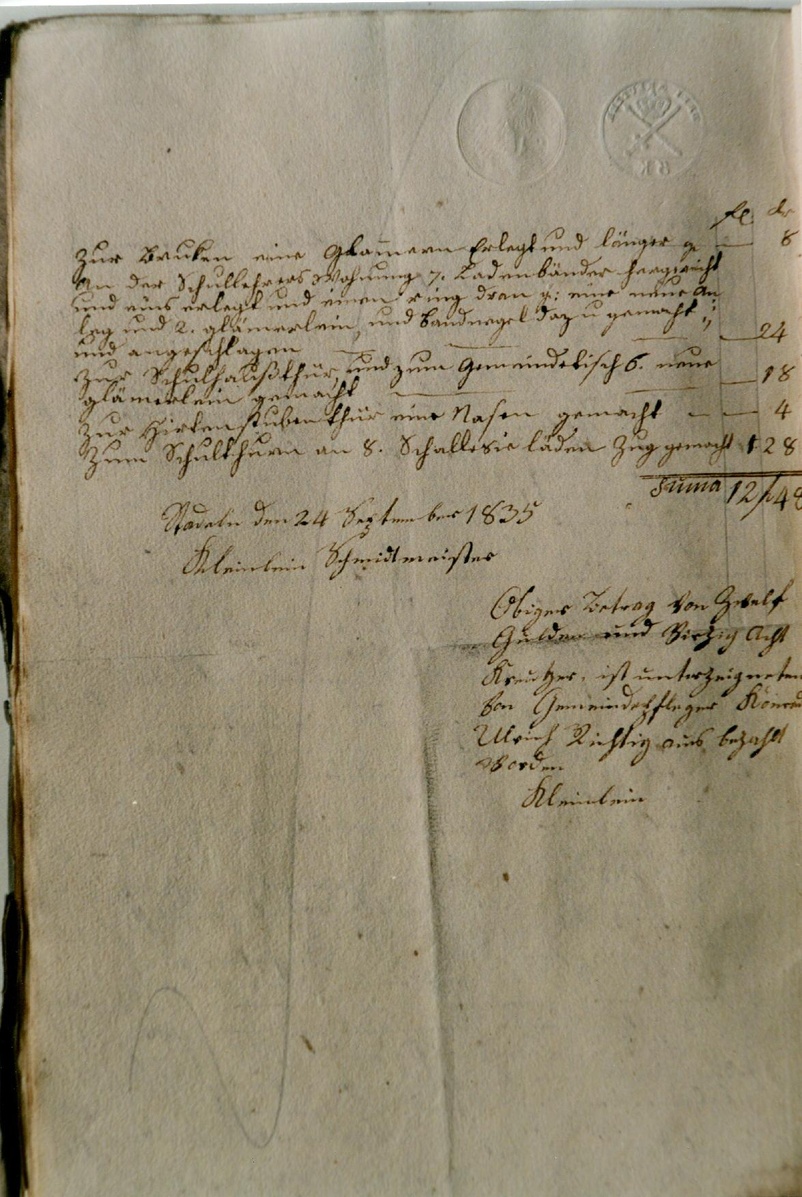 fl. kr
Zur Bruken eine Glamern Erlegt und länger g. — 8
An der Schullehrers Wohnung 7. Ladenbänder hergericht
und eins erlegt und einen ring dran g: eine neue An
leg und 2. glämerlein, und Bandnagel dazu gemacht
und angeschlagen — — — 24
Zur Schulhaußthür, und zum Gemeindetisch 6. neue
glämerlein gemacht — — — 18
Zur Hirtenstubenthür eine Nasen gemacht — — 4
Zum Schulthurn an 8. Schallesie läden Zug gemacht 1 28
Suma 12/48
Stadeln den 24 September 1835
Kleinlein Schmidtmeister
Obiger Betrag von Zwelf
Gulden und Virzig Acht
Kreutzer, ist unterzeigneten
von Gemeindepfleger
Ulrich Richtig aus bezahlt
worden
Kleinlein